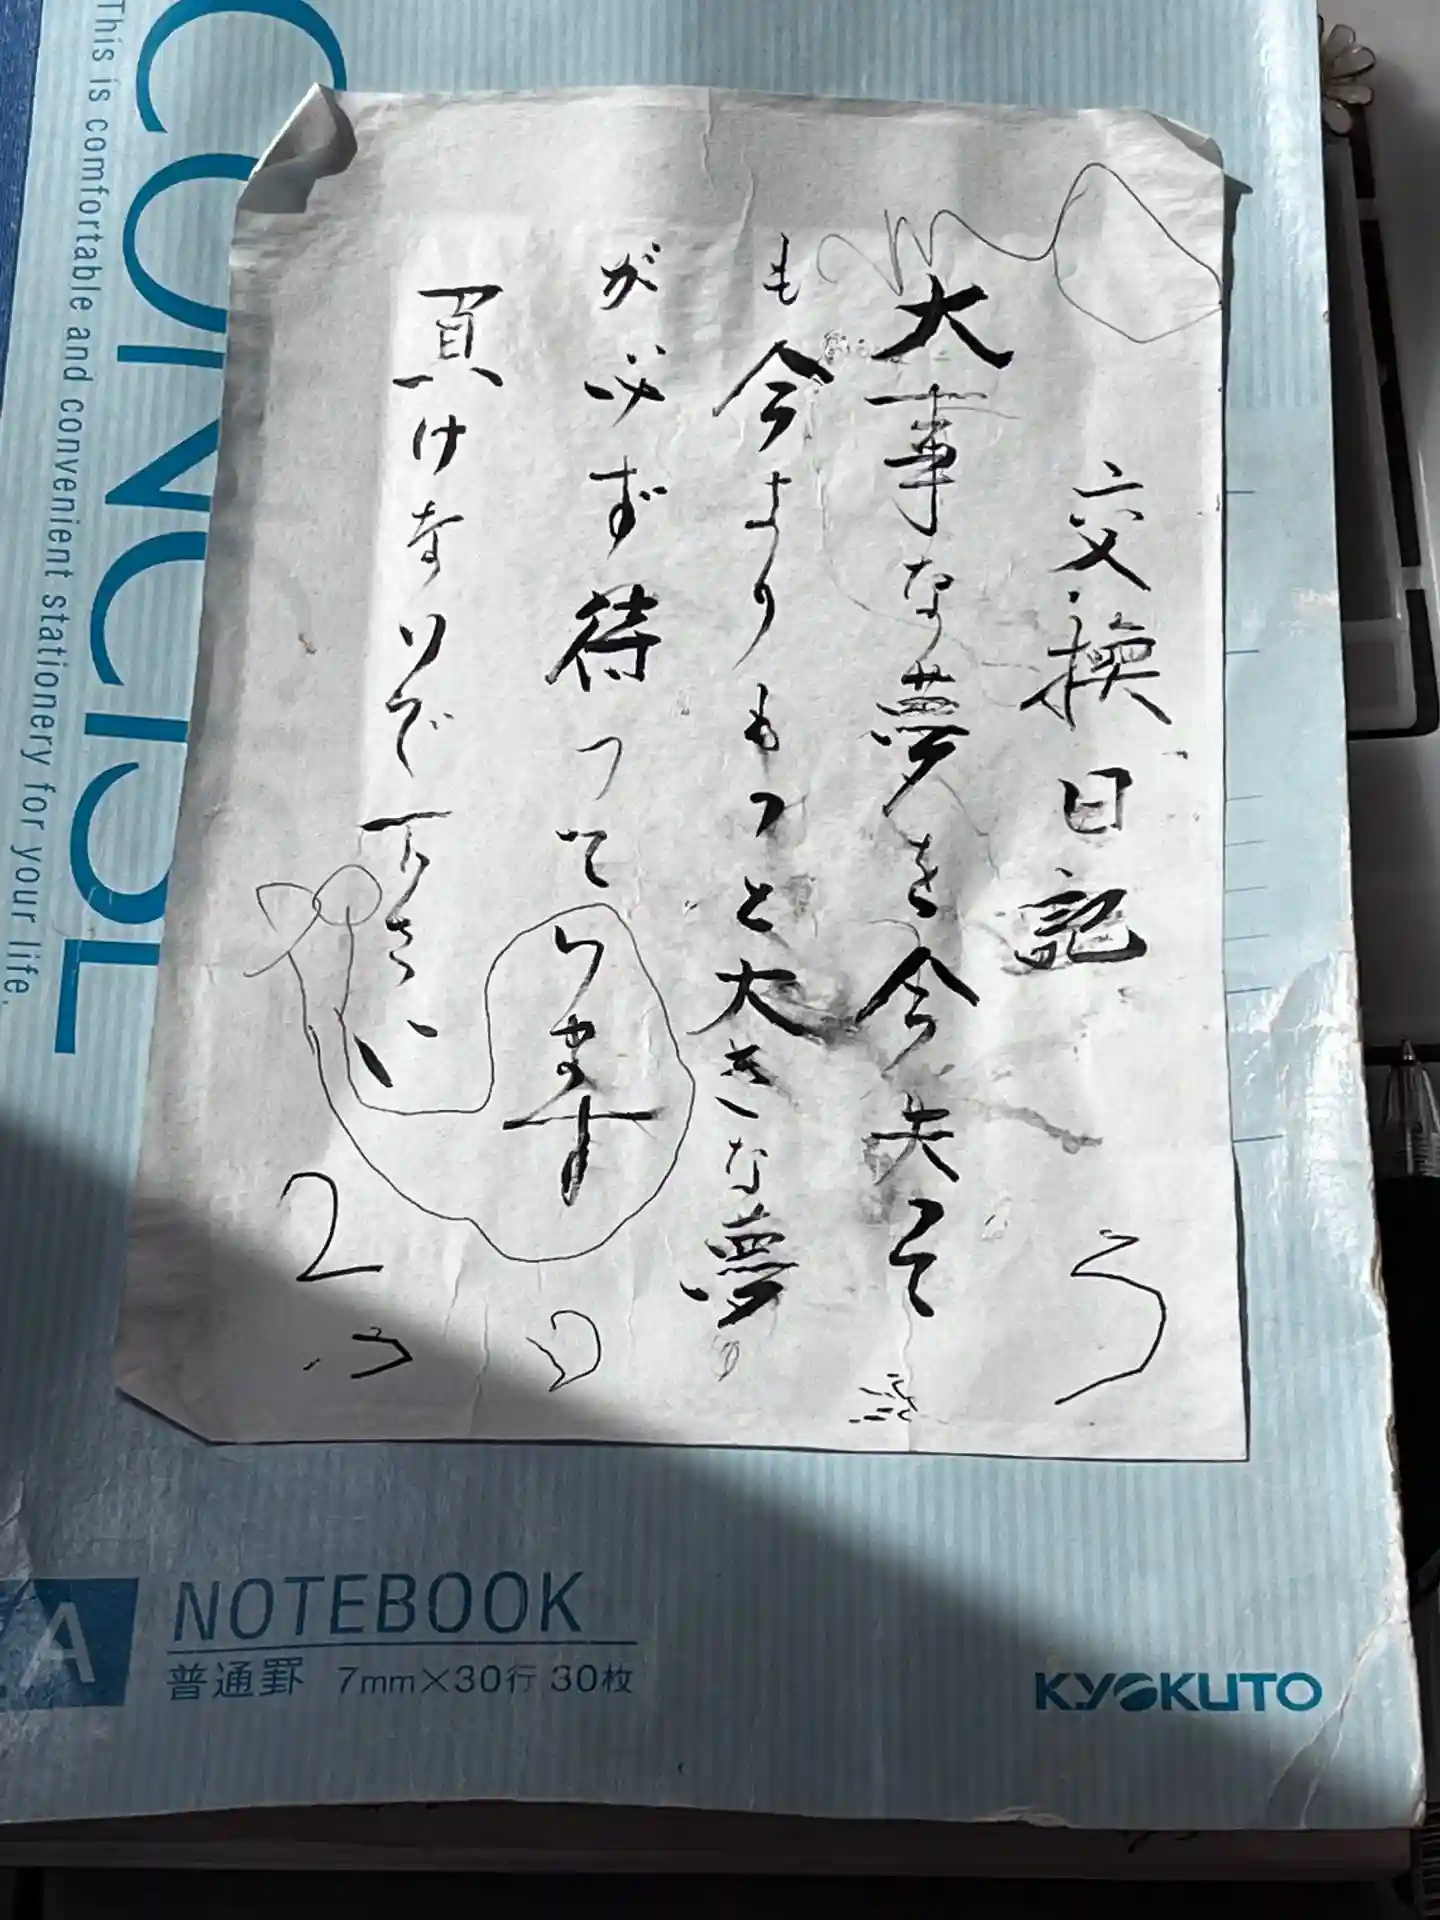 交換日記
大事な夢を今失って
も今よりもっと大きな夢
が必ず待っています
負けないで下さい
This is comfortable and convenient stationery for your life.
A
NOTEBOOK
普通罫 7mm×30行 30枚
KYOKUTO